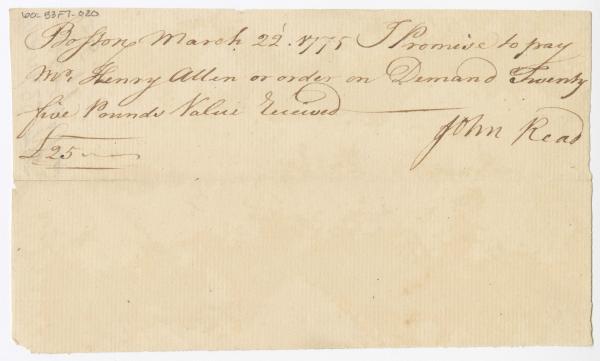 60-83F7-020
Boston March 22. 1775 I Promise to pay
Mr. Henry Allen or order on Demand Twenty
five Pounds Value Received
John Read
£25